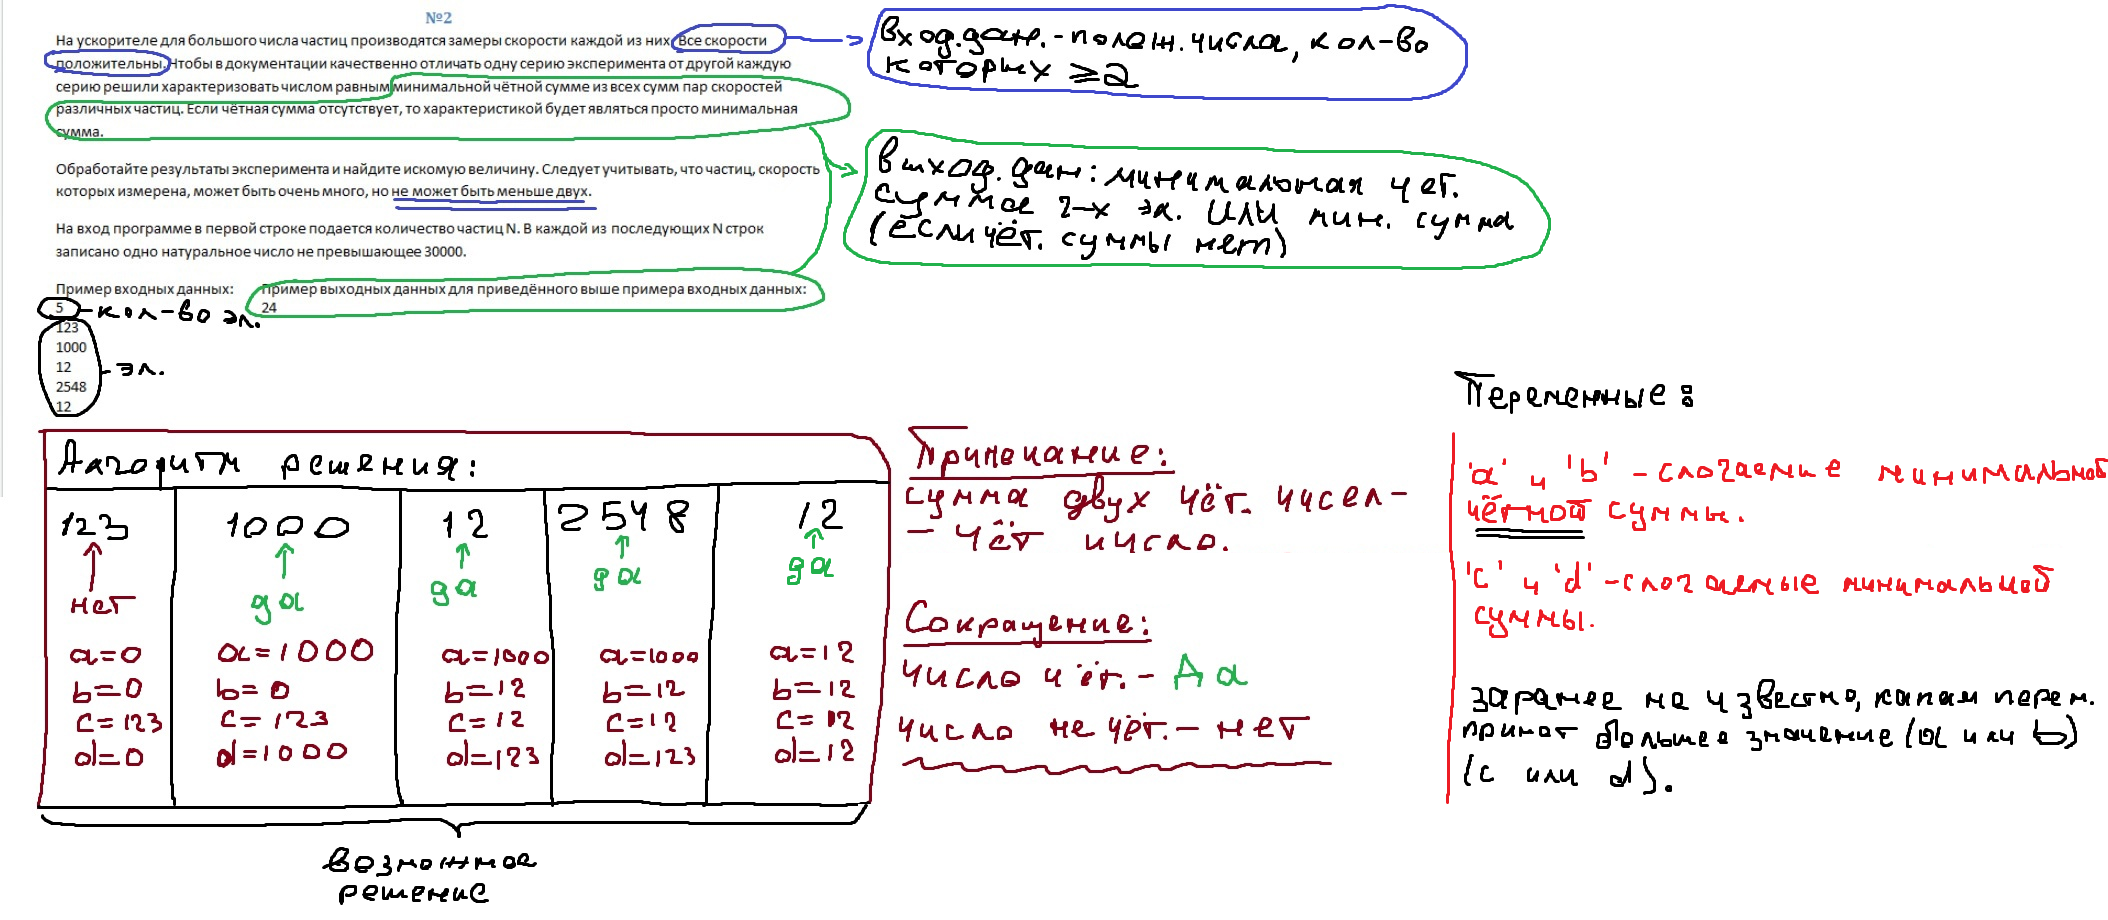 №2
На ускорителе для большого числа частиц производятся замеры скорости каждой из них. Все скорости
положительны. Чтобы в документации качественно отличать одну серию эксперимента от другой каждую
серию решили характеризовать числом равным минимальной чётной сумме из всех сумм пар скоростей
различных частиц. Если чётная сумма отсутствует, то характеристикой будет являться просто минимальная
сумма.
Обработайте результаты эксперимента и найдите искомую величину. Следует учитывать, что частиц, скорость
которых измерена, может быть очень много, но не может быть меньше двух.
На вход программе в первой строке подается количество частиц N. В каждой из последующих N строк
записано одно натуральное число не превышающее 30000.
Пример входных данных: Пример выходных данных для приведённого выше примера входных данных:
5 - кол-во эл. 24
123
1000
12 - эл.
2548
12
вход.дан.-полож.числа, кол-во
которых ≥2
выход.дан: минимальная чет.
сумма 2-х эл. ИЛИ мин. сумма
(если чёт. суммы нет)
Алгоритм решения:
123 1000 12 2548 12
нет да да да да
a=0 a=1000 a=1000 a=1000 a=12
b=0 b=0 b=12 b=12 b=12
c=123 c=123 c=12 c=12 c=12
d=0 d=1000 d=123 d=123 d=12
возможное
решение
Примечание:
сумма двух чёт. чисел-
- чёт число.
Сокращение:
число чёт. - Да
число не чёт. - нет
Переменные:
'a' и 'b' - слогаемые минимальной
чётной суммы.
'c' и 'd' - слогаемые минимальной
суммы.
заранее не известно, какая перем.
примет большее значение (a или b)
(c или d).